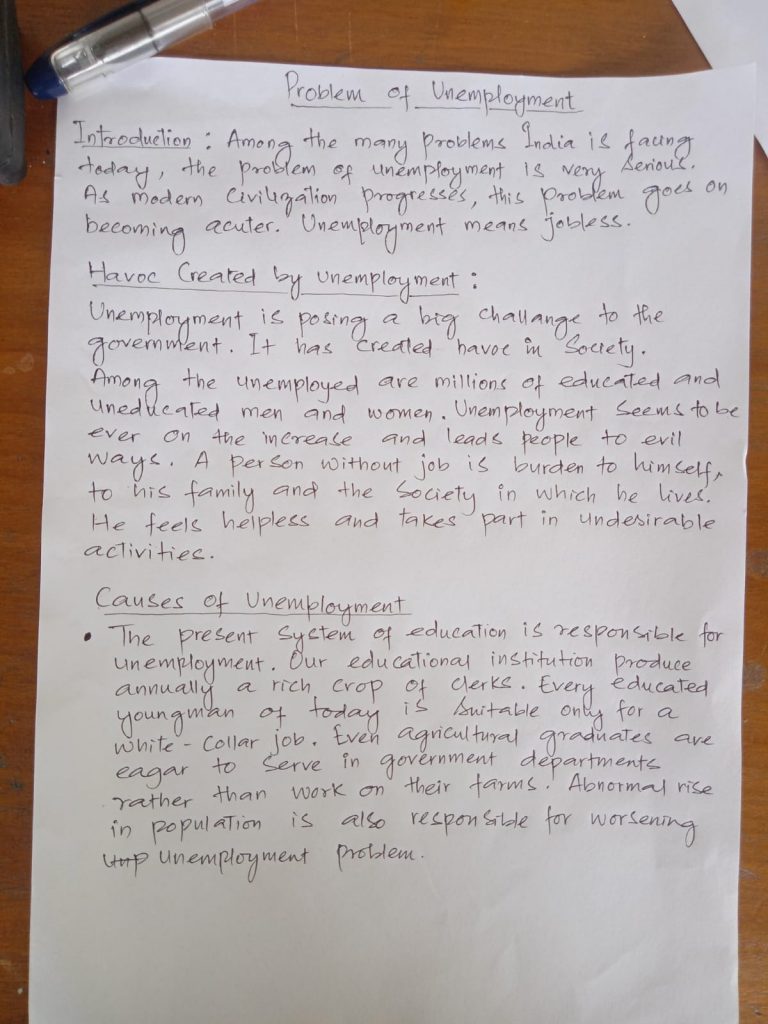 Problem of Unemployment
Introduction : Among the many problems India is facing
today, the problem of unemployment is very serious.
As modern Civilization progresses, this problem goes on
becoming acuter. Unemployment means jobless.
Havoc Created by unemployment :
Unemployment is posing a big challange to the
government. It has created havoc in Society.
Among the unemployed are millions of educated and
uneducated men and women. Unemployment Seems to be
ever on the increase and leads people to evil
ways. A person without job is burden to himself,
to his family and the Society in which he lives.
He feels helpless and takes part in undesirable
activities.
Causes of Unemployment
• The present System of education is responsible for
unemployment. Our educational institution produce
annually a rich crop of clerks. Every educated
youngman of today is suitable only for a
white-collar job. Even agricultural graduates are
eagar to serve in government departments
rather than work on their farms. Abnormal rise
in population is also responsible for worsening
Unemployment problem.